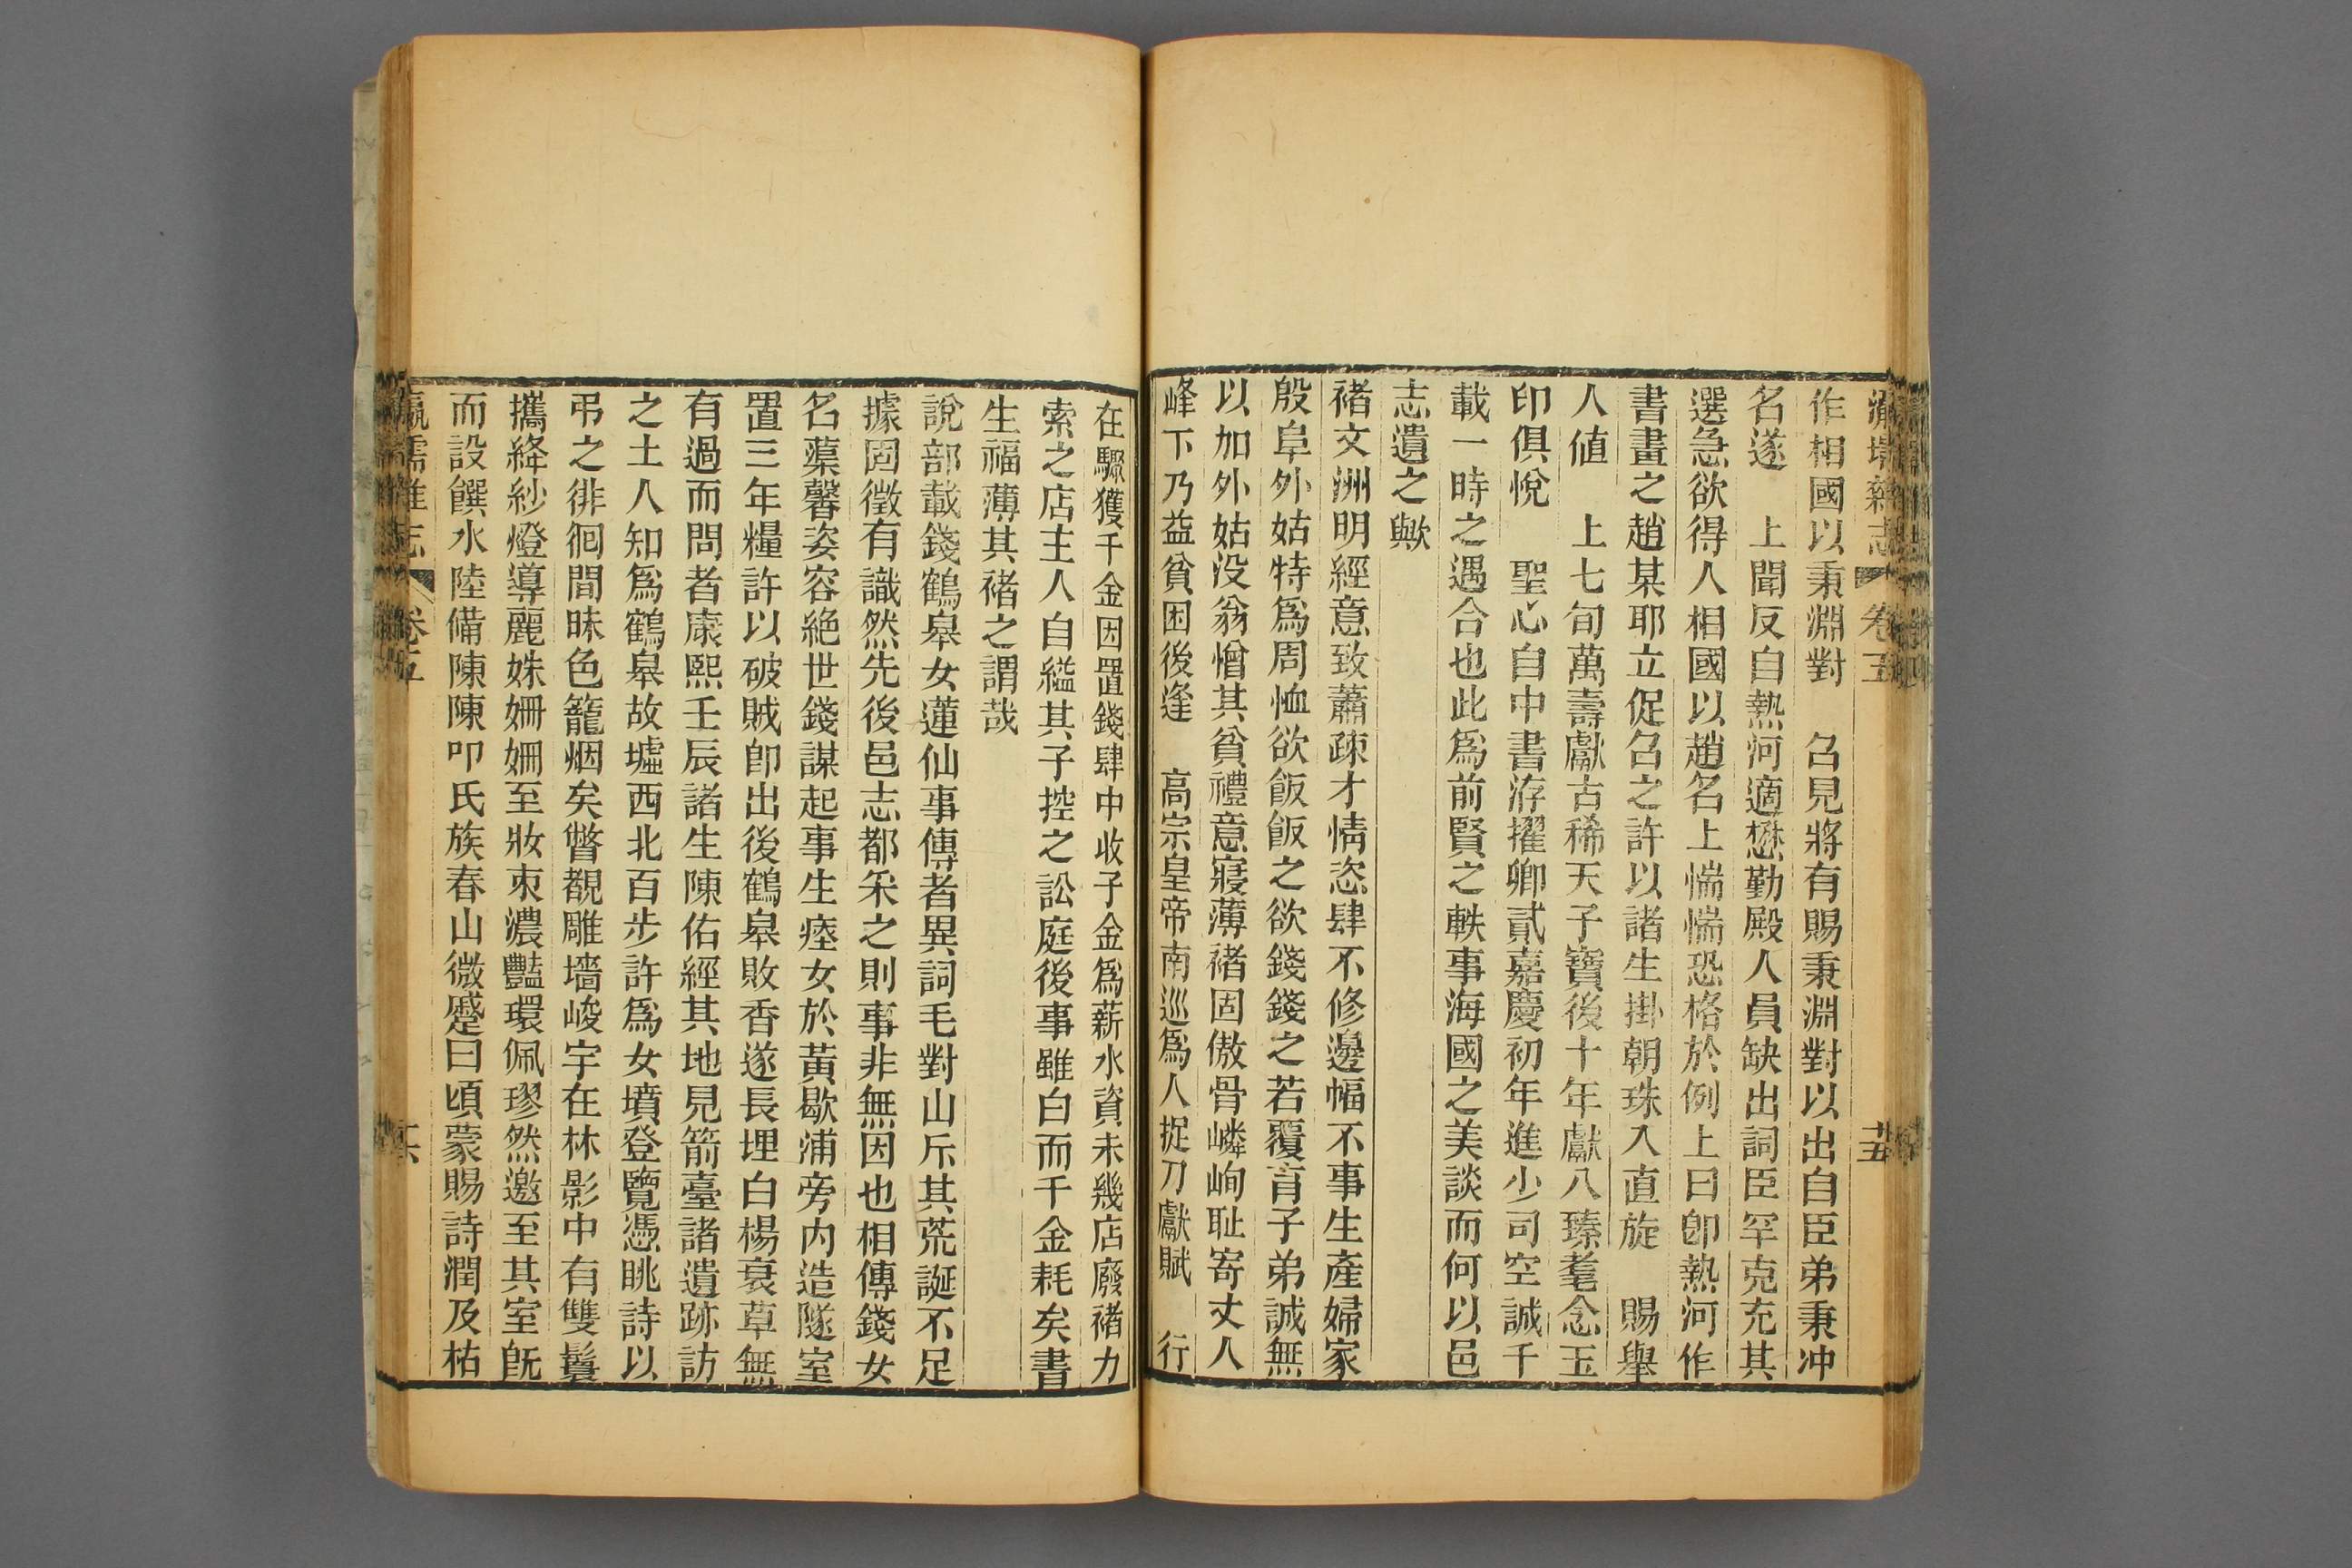 瀛壖雜志 卷五 廿五
作相國以秉淵對 召見將有賜秉淵對以出自臣弟秉冲
名遂 上聞反自熱河適懋勤殿人員缺出詞臣罕克充其
選急欲得人相國以趙名上惴惴恐格於例上曰卽熱河作
書畫之趙某耶立促召之許以諸生掛朝珠入直旋 賜舉
人値 上七旬萬壽獻古稀天子寶後十年獻八瑧耄念玉
印俱悅 聖心自中書洊擢卿貳嘉慶初年進少司空誠千
載一時之遇合也此爲前賢之軼事海國之美談而何以邑
志遺之歟
褚文洲明經意致蕭疎才情恣肆不修邊幅不事生產婦家
殷阜外姑特爲周恤欲飯飯之欲錢錢之若覆育子弟誠無
以加外姑没翁憎其貧禮意寢薄褚固傲骨嶙峋恥寄丈人
峰下乃益貧困後逢 高宗皇帝南巡爲人捉刀獻賦 行
在驟獲千金因置錢肆中收子金爲薪水資未幾店廢褚力
索之店主人自縊其子控之訟庭後事雖白而千金耗矣書
生福薄其褚之謂哉
說部載錢鶴皋女蓮仙事傳者異詞毛對山斥其荒誕不足
據固徵有識然先後邑志都采之則事非無因也相傳錢女
名蕖馨姿容絕世錢謀起事生瘞女於黃歇浦旁内造隧室
置三年糧許以破賊卽出後鶴皋敗香遂長埋白楊衰草無
有過而問者康熙壬辰諸生陳佑經其地見箭臺諸遺跡訪
之土人知爲鶴皋故墟西北百步許爲女墳登覽憑眺詩以
弔之徘徊間昧色籠烟矣瞥覩雕墻峻宇在林影中有雙鬟
攜絳紗燈導麗姝姍姍至妝束濃豔環佩璆然邀至其室旣
而設饌水陸備陳陳叩氏族春山微蹙曰頃蒙賜詩潤及枯
瀛壖雜志 卷五 廿六